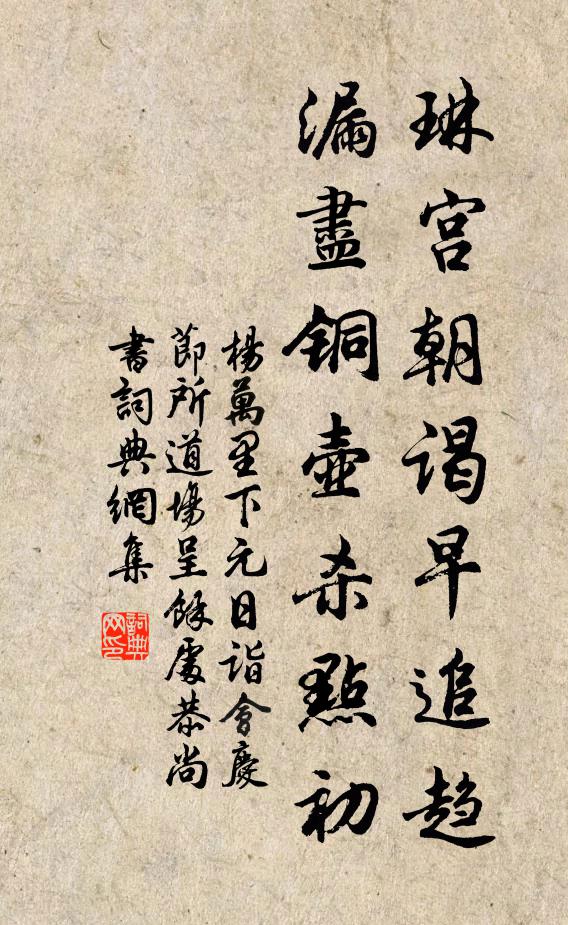 琳宫朝谒早追趋
漏盡铜壺杀點初
楊萬里下元日詣會慶
節所道場呈餘處恭尚
書詞典網集
詞典网印